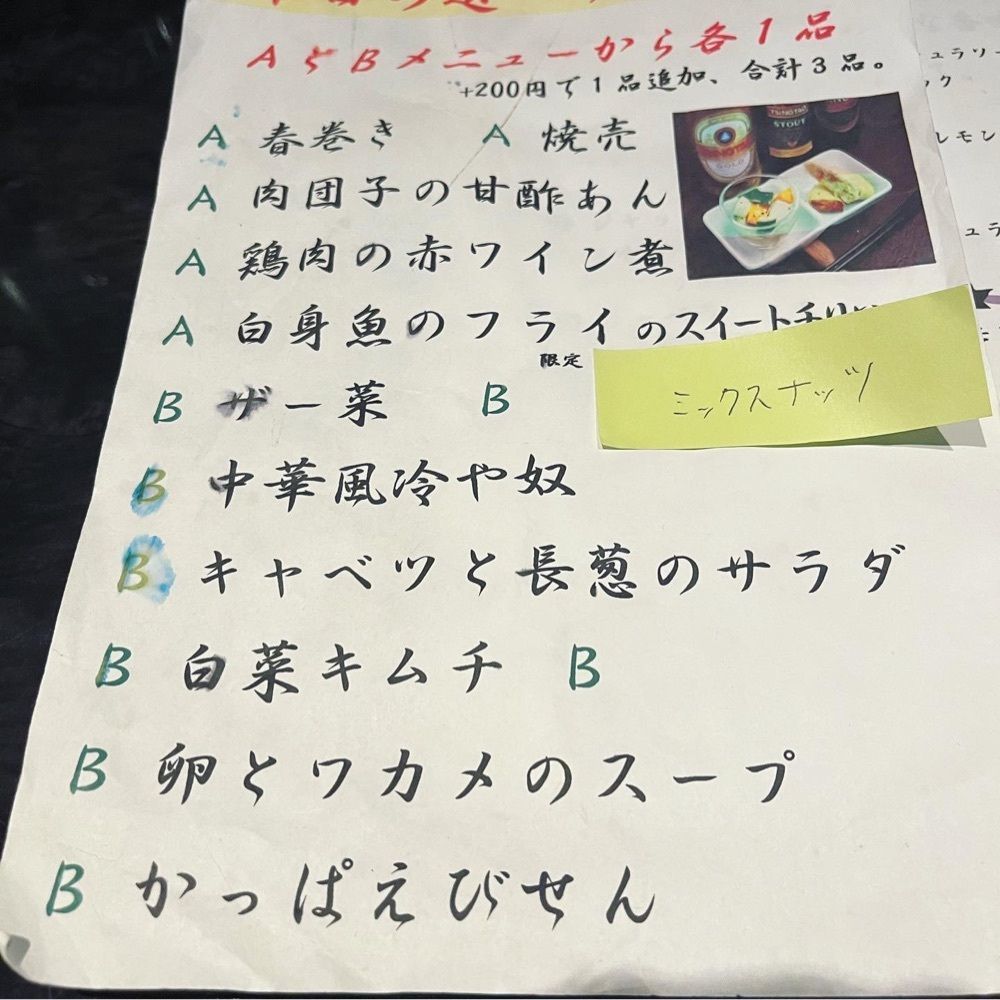 AとBメニューから各1品
+200円で1品追加、合計3品。
A 春巻き A 焼売
STOUT
A 肉団子の甘酢あん
A 鶏肉の赤ワイン煮
A 白身魚のフライのスイートチリ
限定
B ザー菜 B ミックスナッツ
B 中華風冷や奴
B キャベツと長葱のサラダ
B 白菜キムチ B
B 卵とワカメのスープ
B かっぱえびせん
ュラソー
ック
レモン
ュラ